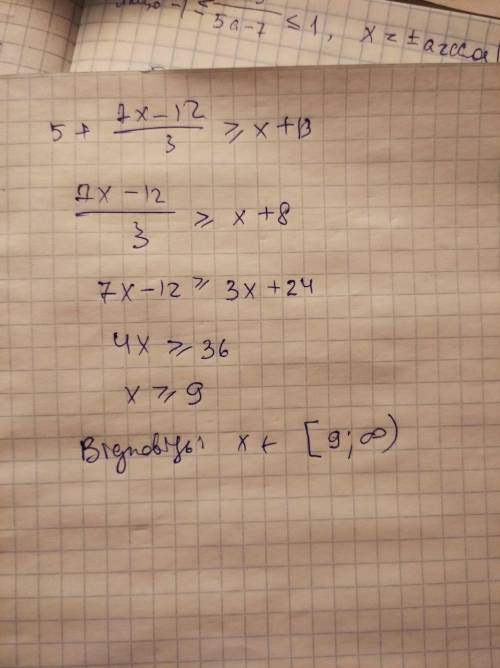 5a-7 ≤ 1, x = ±arccos
5 + (7x-12)/3 ≥ x+13
(7x-12)/3 ≥ x+8
7x-12 ≥ 3x+24
4x ≥ 36
x ≥ 9
Відповідь: x ∈ [9; ∞)